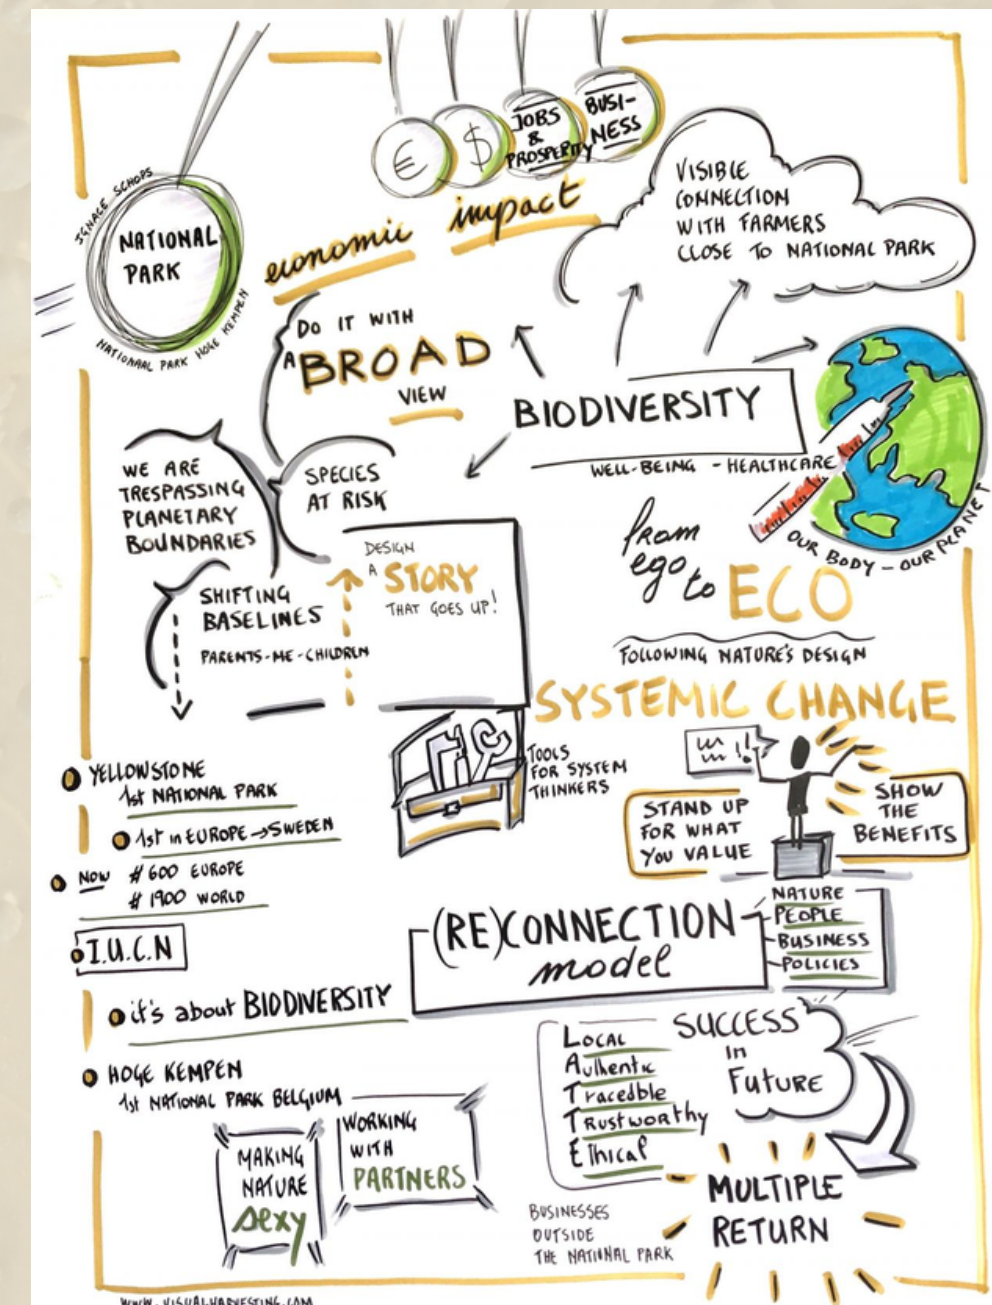 IGNACE SCHOPS
NATIONAL
PARK
NATIONAAL PARK HOGE KEMPEN
€
$
JOBS
&
PROSPERITY
BUSI-
NESS
economic impact
VISIBLE
CONNECTION
WITH FARMERS
CLOSE TO NATIONAL PARK
DO IT WITH
A BROAD
VIEW
BIODIVERSITY
WELL-BEING - HEALTHCARE
OUR BODY - OUR PLANET
WE ARE
TRESPASSING
PLANETARY
BOUNDARIES
SPECIES
AT RISK
SHIFTING
BASELINES
PARENTS-ME-CHILDREN
DESIGN
A STORY
THAT GOES UP!
from
ego
to ECO
FOLLOWING NATURE'S DESIGN
SYSTEMIC CHANGE
TOOLS
FOR SYSTEM
THINKERS
STAND UP
FOR WHAT
YOU VALUE
SHOW
THE
BENEFITS
YELLOWSTONE
1st NATIONAL PARK
1st in EUROPE → SWEDEN
NOW # 600 EUROPE
# 1900 WORLD
I.U.C.N
it's about BIODIVERSITY
HOGE KEMPEN
1st NATIONAL PARK BELGIUM
MAKING
NATURE
sexy
WORKING
WITH
PARTNERS
(RE)CONNECTION
model
NATURE
PEOPLE
BUSINESS
POLICIES
LOCAL
Authentic
Tracedble
Trustworthy
Ethical
BUSINESSES
OUTSIDE
THE NATIONAL PARK
SUCCESS
in
FUTURE
MULTIPLE
RETURN
WWW.VISUALHARVESTING.COM